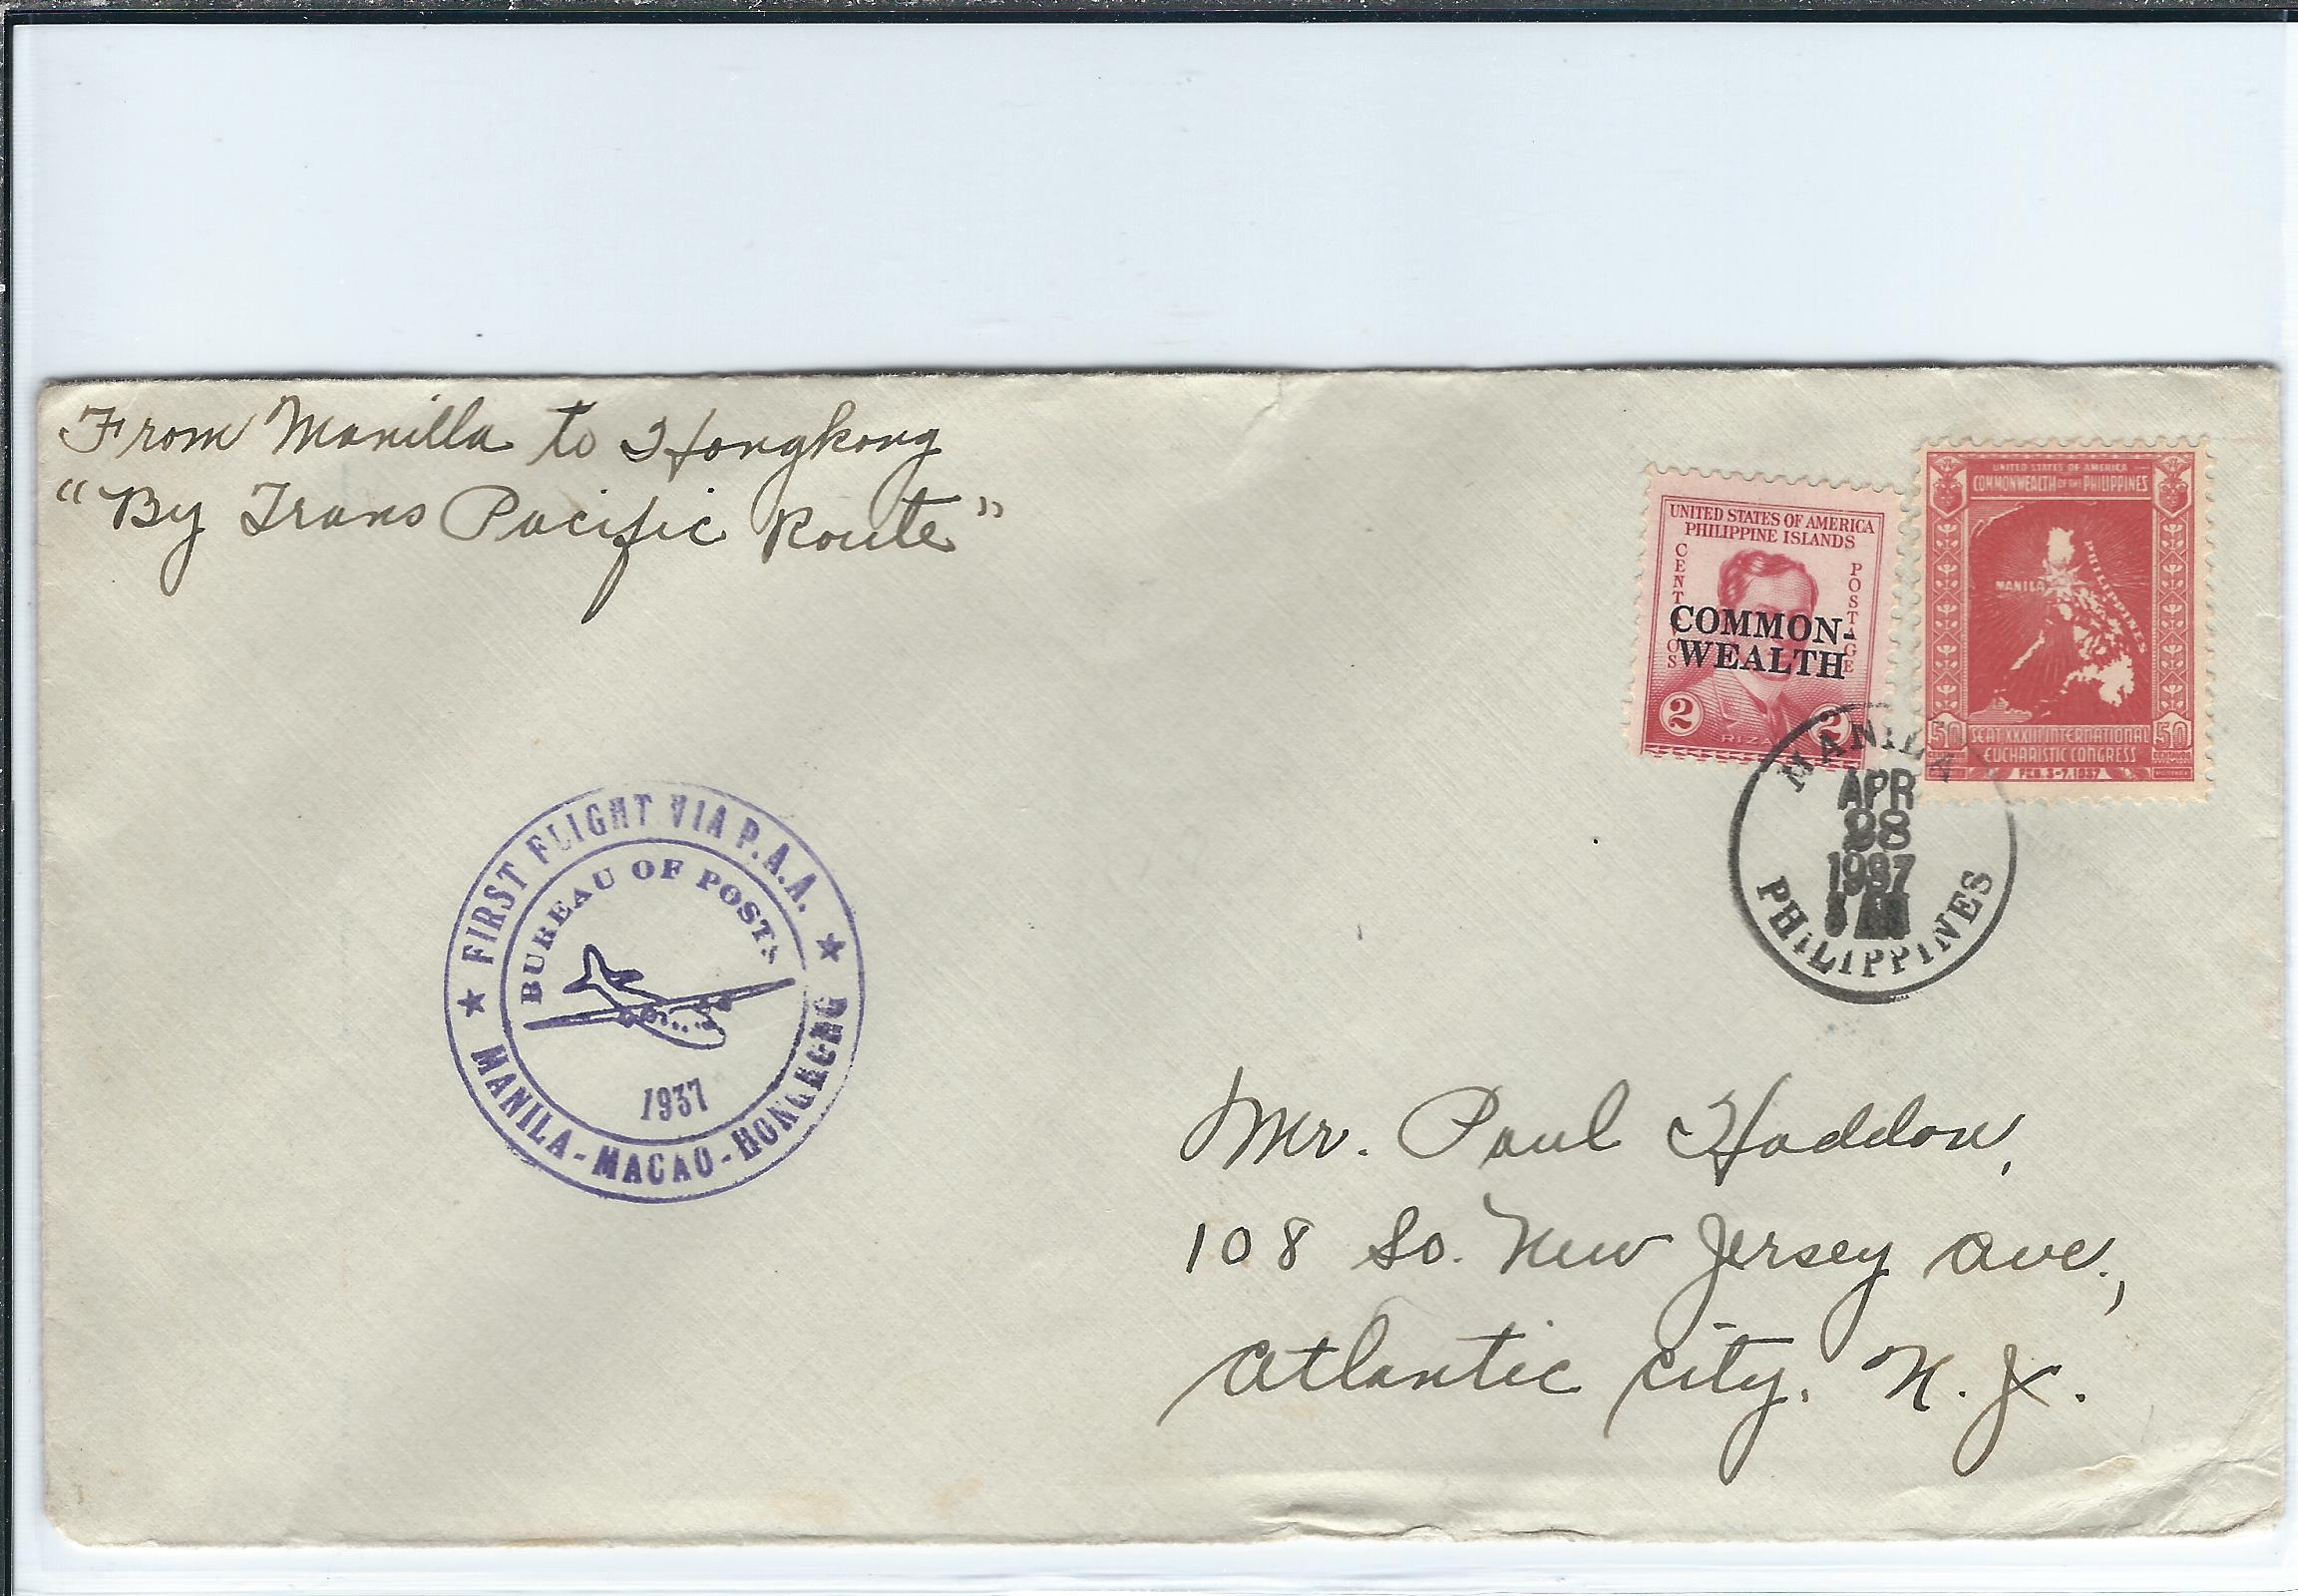 From Manilla to Hongkong
"By Trans Pacific Route"
UNITED STATES OF AMERICA
PHILIPPINE ISLANDS
CENTAVOS
POSTAGE
COMMON-
WEALTH
2 2
RIZAL
UNITED STATES OF AMERICA
COMMONWEALTH OF THE PHILIPPINES
PHILIPPINES
MANILA
50 50
SEAT XXXIII INTERNATIONAL
EUCHARISTIC CONGRESS
FEB. 3-7, 1937
MANILA
APR
28
1937
PHILIPPINES
★ FIRST FLIGHT VIA P.A.A. ★
BUREAU OF POSTS
1937
MANILA-MACAO-HONGKONG
Mr. Paul Haddon,
108 So. New Jersey Ave.,
Atlantic City, N.J.